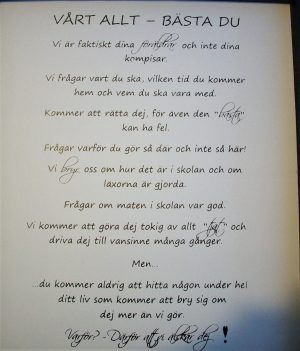 VÅRT ALLT – BÄSTA DU
Vi är faktiskt dina föräldrar och inte dina
kompisar.
Vi frågar vart du ska, vilken tid du kommer
hem och vem du ska vara med.
Kommer att rätta dej, för även den "bästa"
kan ha fel.
Frågar varför du gör så där och inte så här!
Vi bryr oss om hur det är i skolan och om
läxorna är gjorda.
Frågar om maten i skolan var god.
Vi kommer att göra dej tokig av allt "tjat" och
driva dej till vansinne många gånger.
Men...
...du kommer aldrig att hitta någon under hel
ditt liv som kommer att bry sig om
dej mer än vi gör.
Varför? - Därför att vi älskar dej !